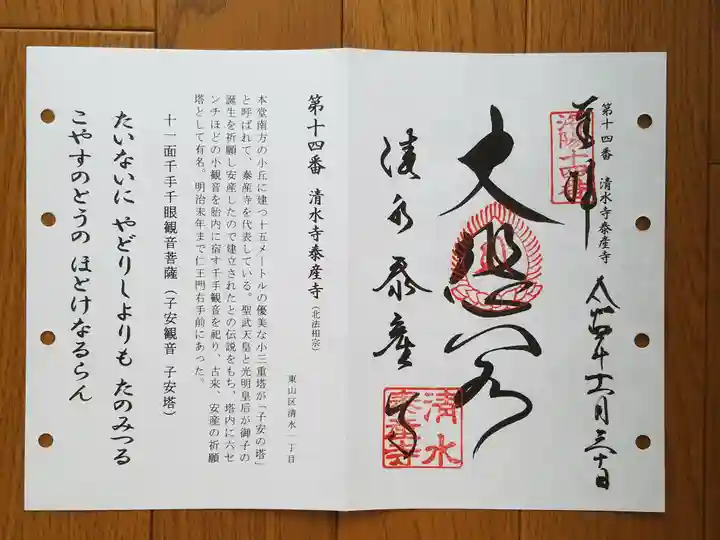 第十四番 清水寺泰産寺
奉拝
洛陽十四番
大悲閣
清水泰産寺
清水
泰産寺
第十四番 清水寺泰産寺(北法相宗)
東山区清水一丁目
本堂南方の小丘に建つ十五メートルの優美な小三重塔が「子安の塔」
と呼ばれて、泰産寺を代表している。聖武天皇と光明皇后が御子の
誕生を祈願し安産したので建立されたとの伝説をもち、塔内に六セ
ンチほどの小観音を胎内に宿す千手観音を祀り、古来、安産の祈願
塔として有名。明治末年まで仁王門右手前にあった。
十一面千手千眼観音菩薩(子安観音 子安塔)
たいないに やどりしよりも たのみつる
こやすのとうの ほとけなるらん